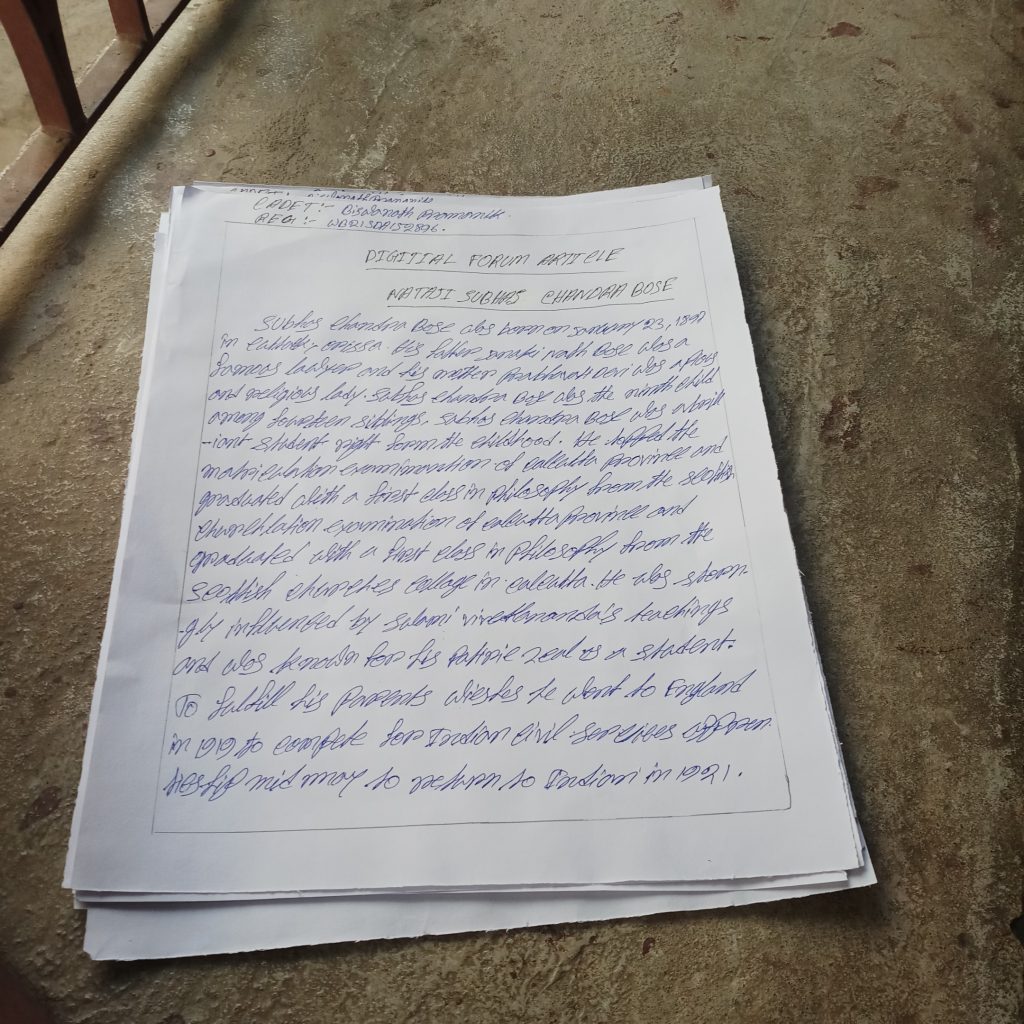 CADET :- Biswanath Pramanik.
REG :- WB21SDA152896.
DIGITIAL FORUM ARTICLE
NATAJI SUBHAS CHANDRA BOSE
Subhas Chandra Bose was born on January 23, 1897
in Cuttack, Orissa. His father Janaki nath Bose was a
famous lawyer and his mother Prabhavati Devi was a pious
and religious lady. Subhas Chandra Bose was the ninth child
among fourteen siblings, Subhas Chandra Bose was a brill
-iant student right form the childhood. He topped the
matriculation examination of Calcutta Province and
graduated with a first class in Philosophy from the
examination of Calcutta Province and
graduated with a first class in Philosophy from the
Scottish Churches College in Calcutta. He was
-gly influenced by Swami teachings
and was known for his zeal as a student.
To fulfill his Parents wieshes he went to England
in 1919 to compete for Indian Civil Services
mid may to return to Indian in 1921.